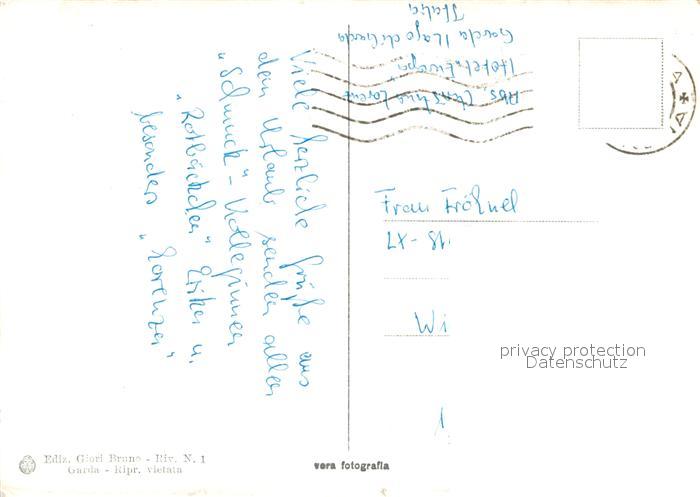 Viele herzliche Grüße aus
dem Urlaub senden allen
"Schmuck"-Kolleginnen
"Rotbäckchen" Erika u.
besonders "Lorenza"
Abs. Christine Lorenz
Hotel Europa
Garda (Lago di Garda
Italia
Frau Fröhnel
Wi
privacy protection
Datenschutz
Ediz. Giori Bruno - Riv. N. 1
Garda - Ripr. vietata
vera fotografia